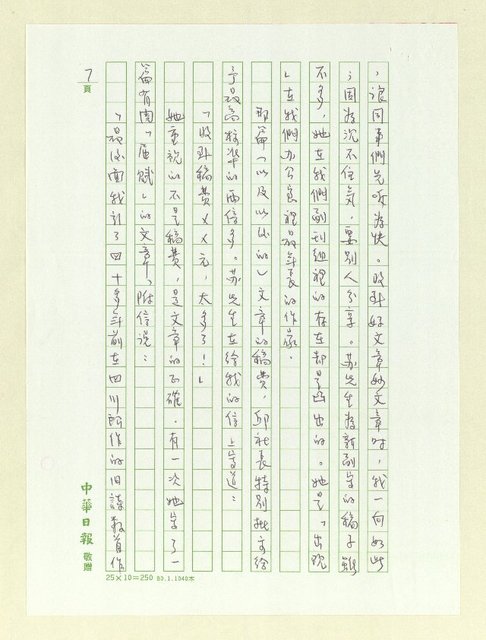 ，讓同事們先唸為快。收到好文章妙文章時，我一向如此
；因為沉不住氣，要別人分享。蘇先生為新副寫的稿子雖
不多，她在我們副刊過程裡的存在却是凸出的。她是「出現
」在我們办公室裡最年長的作家。
那篇（以及以後的）文章的稿費，邱社長特別批支給
予最高標準的兩倍多。蘇先生在給我的信上寫道：
「收到稿費××元，太多了！」
她重視的不是稿費，是文章的正確。有一次她寫了一
篇有關「屈賦」的文章，附信說：
「最後面我引了四十多年前在四川所作的旧詩数首作
7頁
中華日報 敬贈
25×10=250 80.1.1040本